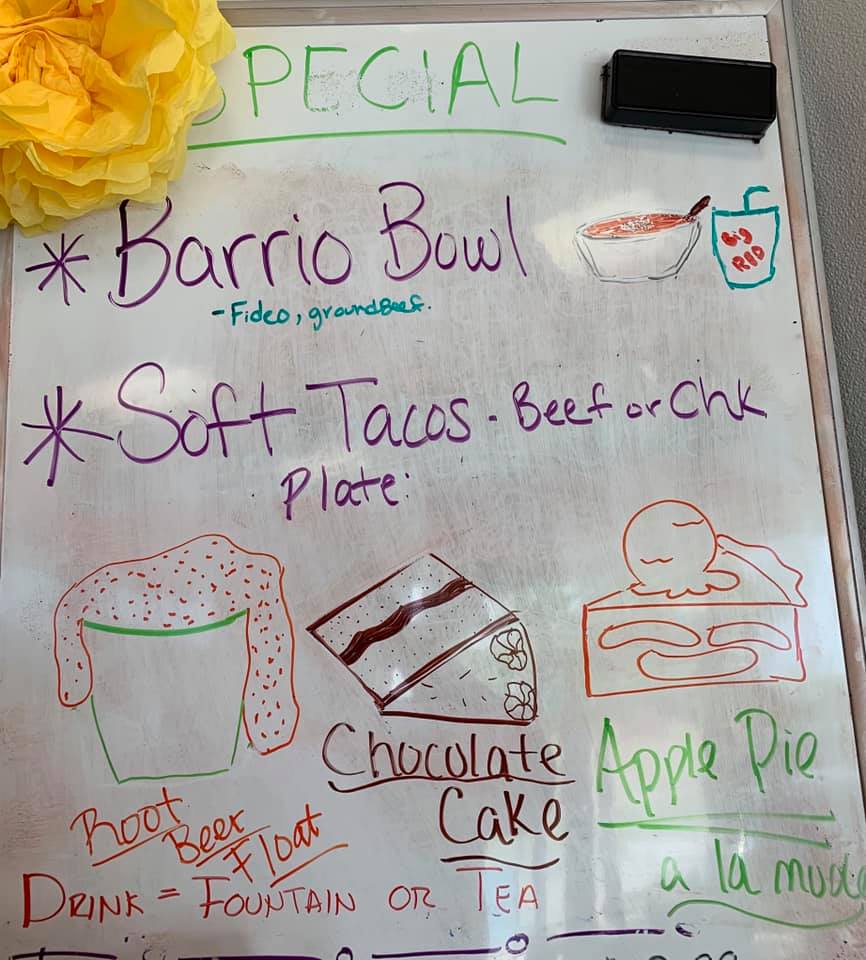 SPECIAL
* Barrio Bowl
Big
RED
- Fideo, ground Beef.
* Soft Tacos - Beef or Chk
Plate:
Root
Beer
Float
Chocolate
Cake
Apple Pie
a la mode
DRINK = FOUNTAIN OR TEA